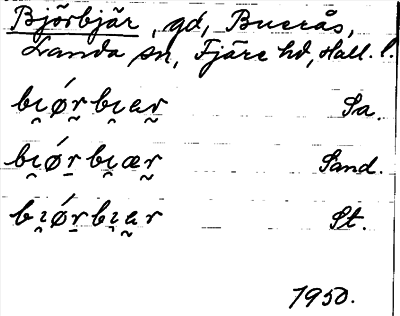 Björbjär, gd, Buerås,
Landa sn, Fjäre hd, Hall. l.
bı̯ǿr̠bı̯ar̰ Sa.
bı̯ǿr̠bı̯ær̰ Sand.
bı̯ǿr̠bı̯a̰r St.
1950.